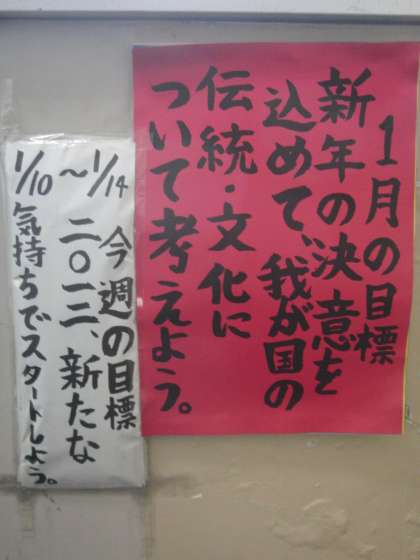 1月の目標
新年の決意を
込めて、我が国の
伝統・文化に
ついて考えよう。
今週の目標
1/10〜1/14
二〇一二、新たな
気持ちでスタートしよう。